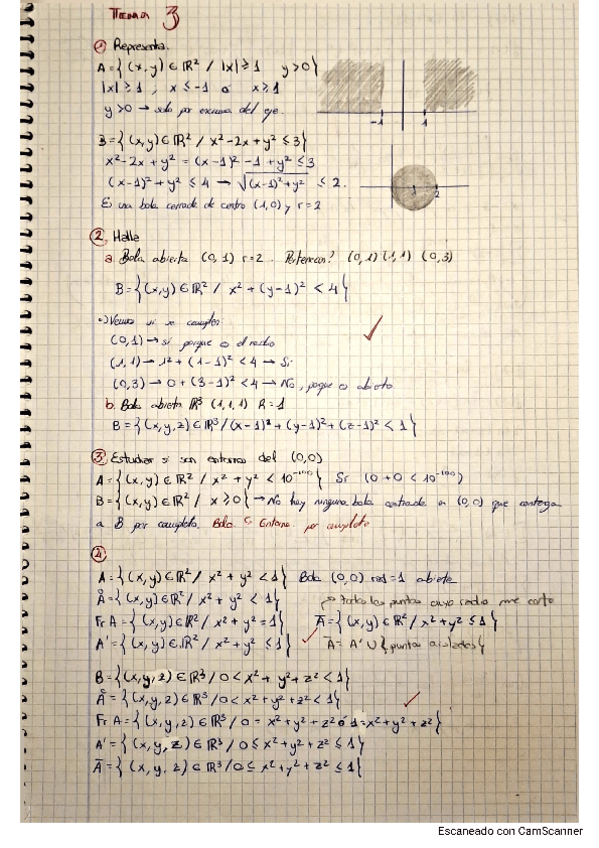 Tema 3
① Representa.
A = { (x, y) ∈ ℝ² / |x| ≥ 1 y > 0 }
|x| ≥ 1 ; x ≤ -1 o x ≥ 1
y > 0 → solo por encima del eje.
-1 1
B = { (x, y) ∈ ℝ² / x² - 2x + y² ≤ 3 }
x² - 2x + y² = (x-1)² - 1 + y² ≤ 3
(x-1)² + y² ≤ 4 → √(x-1)² + y² ≤ 2.
Es una bola cerrada de centro (1,0) y r = 2
1 2
② Halla
a. Bola abierta (0,1) r = 2. Pertenecen? (0,1) (1,1) (0,3)
B = { (x, y) ∈ ℝ² / x² + (y-1)² < 4 }
Vemos si se cumple:
(0,1) → si porque es el centro
(1,1) → 1² + (1-1)² < 4 → Si
(0,3) → 0 + (3-1)² < 4 → No, porque es abierta.
b. Bola abierta ℝ³ (1,1,1) R = 1
B = { (x, y, z) ∈ ℝ³ / (x-1)² + (y-1)² + (z-1)² < 1 }
③ Estudiar si son entornos del (0,0)
A = { (x, y) ∈ ℝ² / x² + y² < 10⁻¹⁰⁰ } Si (0 + 0 < 10⁻¹⁰⁰)
B = { (x, y) ∈ ℝ² / x ≥ 0 } → No hay ninguna bola centrada en (0,0) que contenga
a B por completo. Bola ⊂ Entorno por completo
④
A = { (x, y) ∈ ℝ² / x² + y² < 1 } Bola (0,0) rad = 1 abierta
Å = { (x, y) ∈ ℝ² / x² + y² < 1 } → todos los puntos cuyo radio me corte
Fr A = { (x, y) ∈ ℝ² / x² + y² = 1 } Ā = { (x, y) ∈ ℝ² / x² + y² ≤ 1 }
A' = { (x, y) ∈ ℝ² / x² + y² ≤ 1 } Ā = A' ∪ { puntos aislados }
B = { (x, y, z) ∈ ℝ³ / 0 < x² + y² + z² < 1 }
Å = { (x, y, z) ∈ ℝ³ / 0 < x² + y² + z² < 1 }
Fr A = { (x, y, z) ∈ ℝ³ / 0 = x² + y² + z² ó 1 = x² + y² + z² }
A' = { (x, y, z) ∈ ℝ³ / 0 ≤ x² + y² + z² ≤ 1 }
Ā = { (x, y, z) ∈ ℝ³ / 0 ≤ x² + y² + z² ≤ 1 }
Escaneado con CamScanner